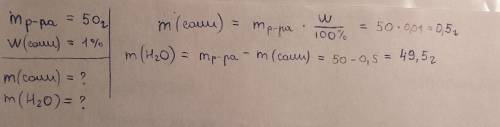 m р-ра = 50г
W(соли) = 1%
m(соли) = ?
m(H₂O) = ?
m(соли) = m р-ра · W/100% = 50 · 0,01 = 0,5г
m(H₂O) = m р-ра - m(соли) = 50 - 0,5 = 49,5г